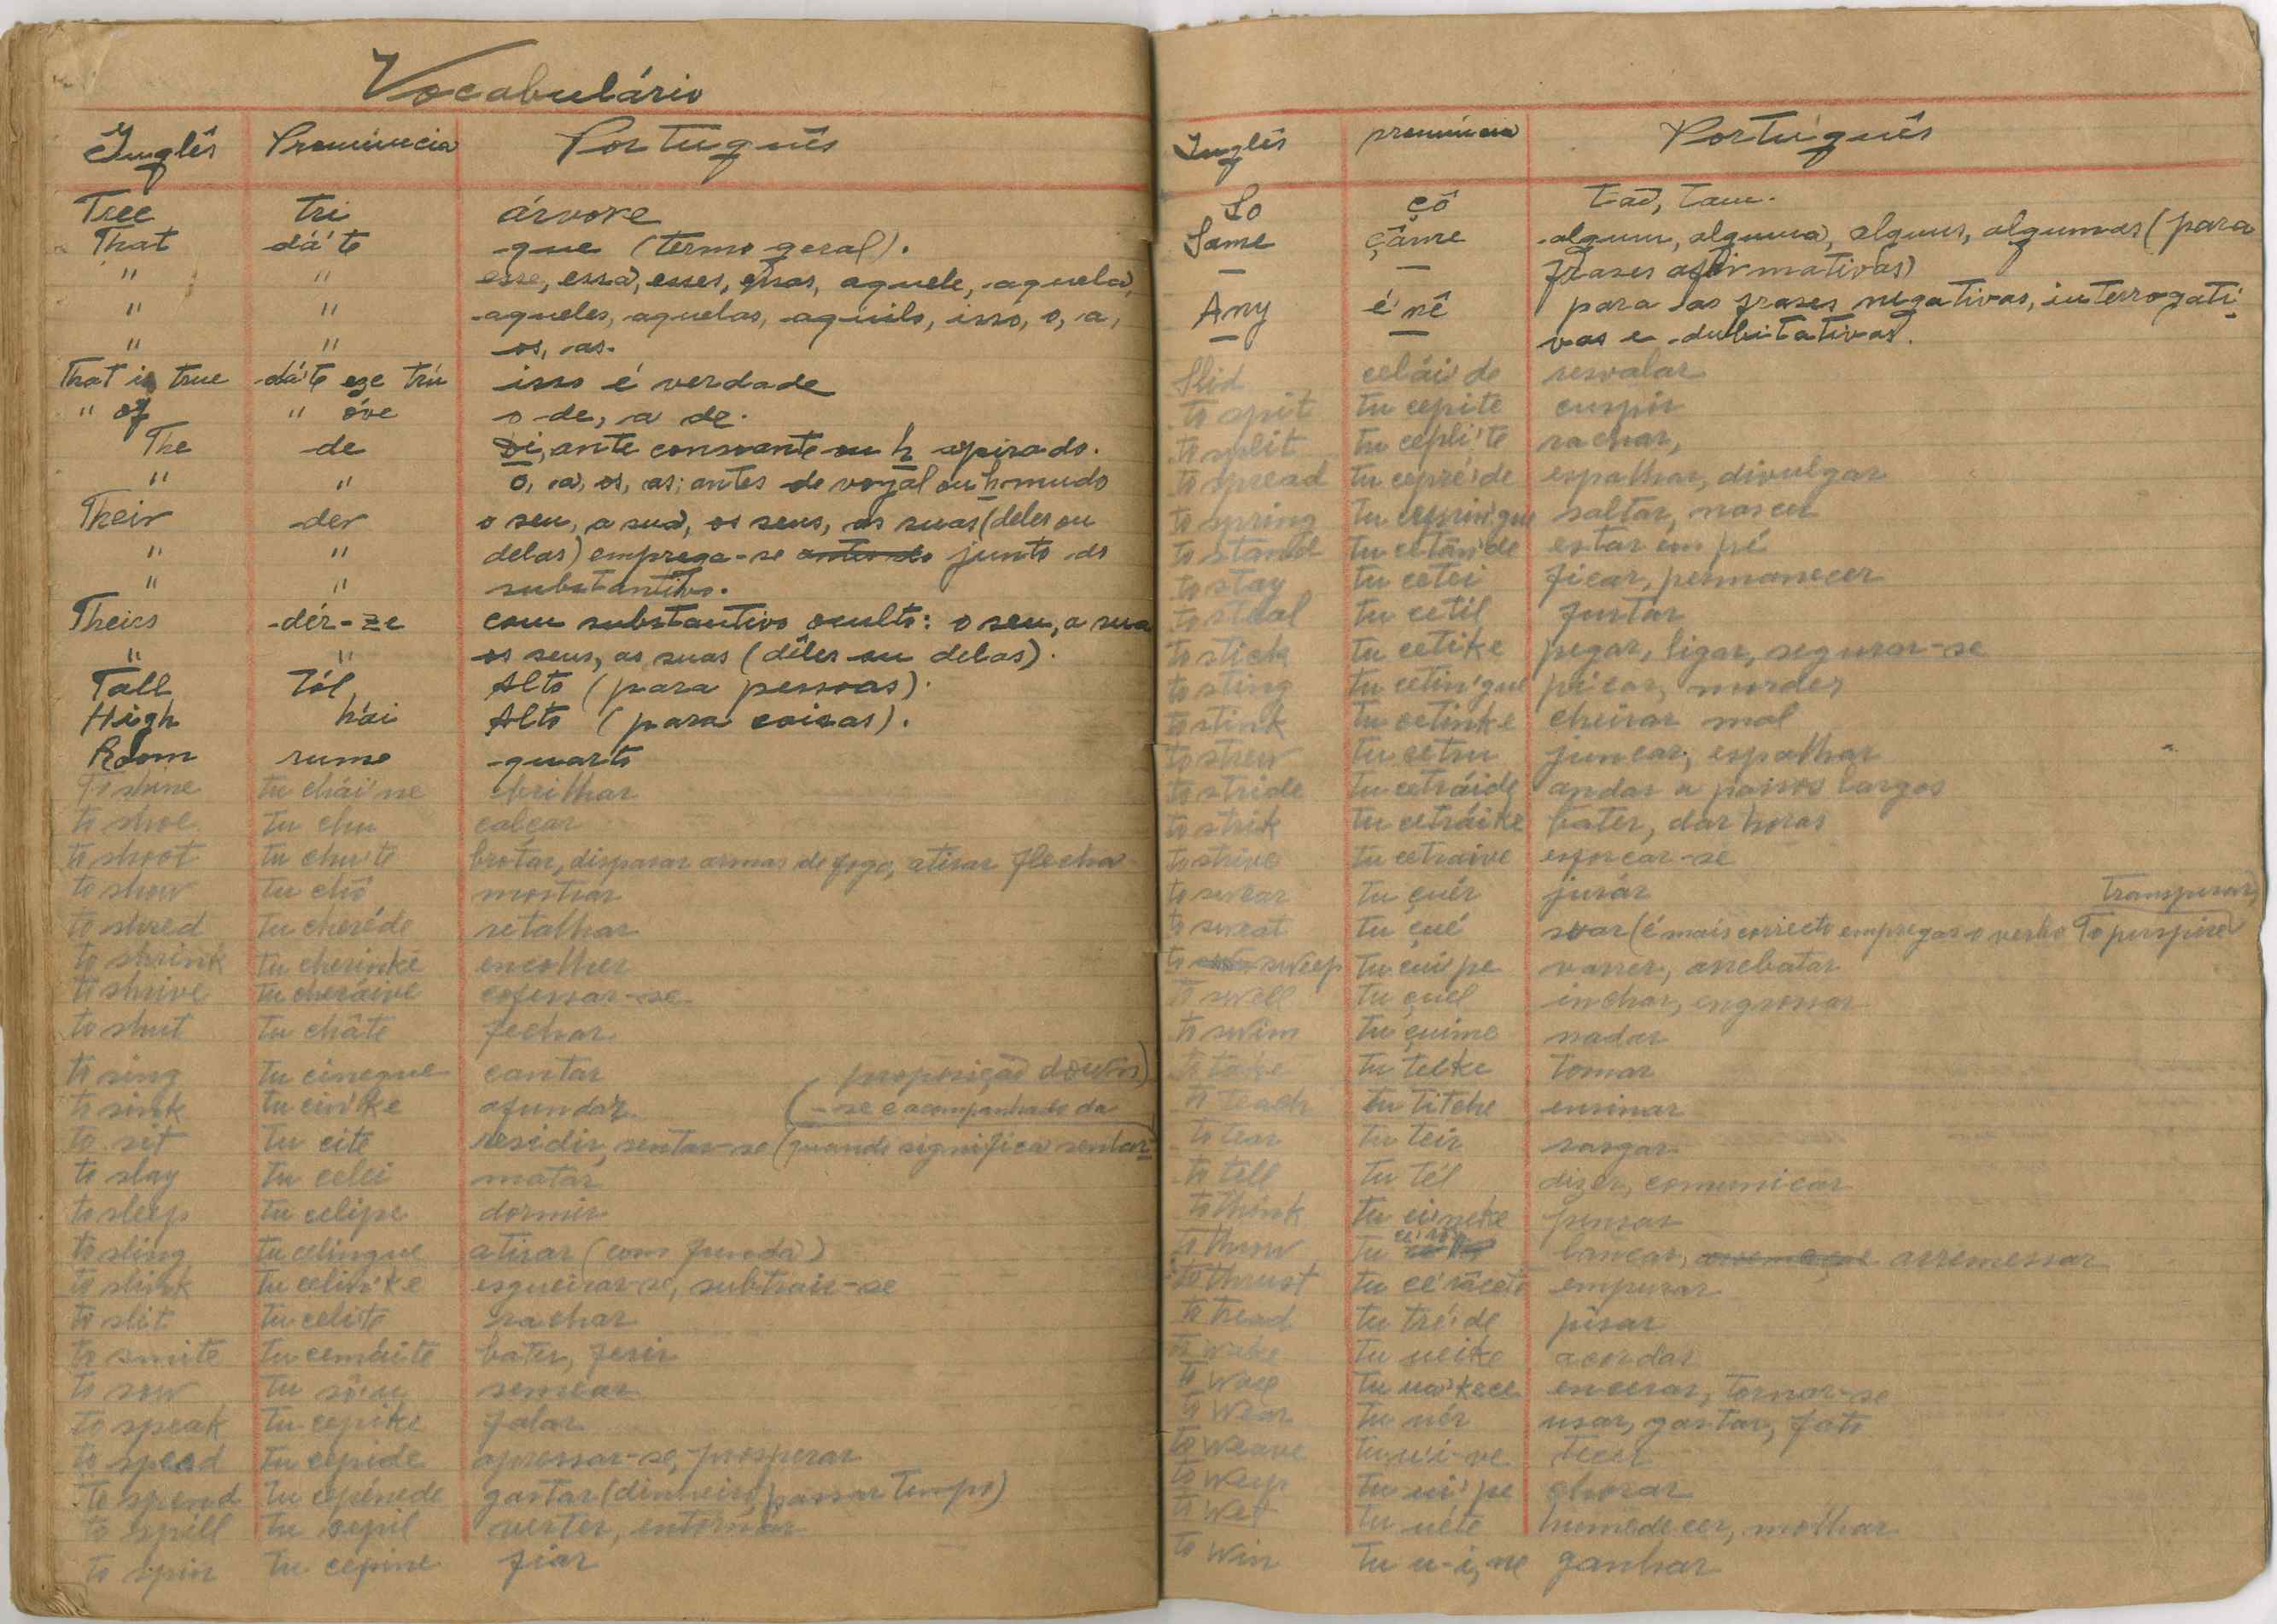 Vocabulário
Inglês Pronúncia Português
Tree tri árvore
That dá'te que (termo geral).
" " esse, essa, esses, essas, aquele, aquela,
" " aqueles, aquelas, aquilo, isso, o, a,
" " os, as.
That is true dá'te eze trú isso é verdade
" of " óve o de, a de.
The de Di, ante consoante ou h aspirado.
" " o, a, os, as; antes de vogal ou h mudo
Their der o seu, a sua, os seus, as suas (deles ou
" " delas) emprega-se junto do
" " substantivo.
Theirs dér-ze com substantivo oculto: o seu, a sua
" " os seus, as suas (dêles ou delas).
Tall Tól Alto (para pessoas).
High hái Alto (para coisas).
Room rume quarto
To shine tu chái'ne brilhar
to shoe tu chu calçar
to shoot tu chu'te brotar, disparar armas de fogo, atirar flecha
to show tu chô mostrar
to shred tu cheréde retalhar
to shrink tu cherinke encolher
to shrive tu cheráive cofessar-se
to shut tu châte fechar
to sing tu cinegue cantar (preposição down)
to sink tu cin'ke afundar (-se é acompanhado da
to sit tu cite residir, sentar-se (quando significa sentar-
to slay tu celei matar
to sleep tu celipe dormir
to sling tu celingue atirar (com funda)
to slink tu celin'ke esgueirar-se, subtrair-se
to slit tu celite rachar
to smite tu cemáite bater, ferir
to sow tu sô'u semear
to speak tu cepike falar
to speed tu cepide apressar-se, prosperar
To spend tu cepénede gastar (dinheiro, passar tempo)
to spill tu cepil verter, entornar
to spin tu cepine fiar
Inglês pronúncia Português
So çô tão, tam.
Some çâme algum, alguma, alguns, algumas (para
— — frases afirmativas)
Any é'nê para as frases negativas, interrogati-
— — vas e dubitativas.
Slid celái'de resvalar
to spit tu cepite cuspir
to split tu cepli'te rachar,
to spread tu cepré'de espalhar, divulgar
to spring tu ceprin'gue saltar, nascer
to stand tu cetân'de estar em pé
to stay tu cetei ficar, permanecer
to steal tu cetil furtar
to stick tu cetike pegar, ligar, segurar-se
to sting tu cetin'gue picar, morder
to stink tu cetinke cheirar mal
to strew tu cetru juncar, espalhar
to stride tu cetráide andar a passos largos
to strik tu cetráike bater, dar horas
to strive tu cetraive esforcar-se
to swear tu çuér jurár transpirar
to sweat tu çué suar (é mais correcto empregar o verbo To perspire)
to sweep tu çui'pe varrer, arrebatar
to swell tu çuel inchar, engrossar
to swim tu çuime nadar
to take tu teike tomar
to teach tu titche ensinar
to tear tu teir rasgar
to tell tu tél dizer, comunicar
to think tu ci'neke pensar
to throw tu lancar, arremessar
to thrust tu ce'râcete empurar
to tread tu tré'de pisar
to wake tu ueike acordar
to wax tu uá'kece encerar, tornar-se
to wear tu uér usar, gastar, fato
to weave tu ui-ve tecer
to weep tu ui'pe chorar
to wet tu uéte humedecer, molhar
to win tu u-i,ne ganhar